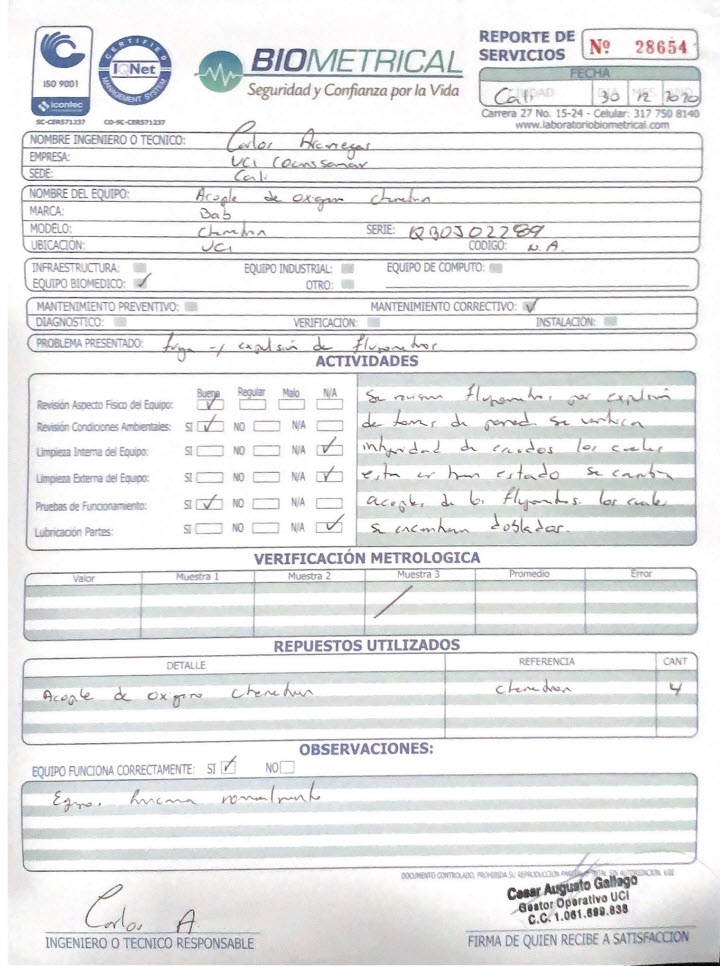 ISO 9001
icontec
SC-CER571237
CERTIFIED
IQNet
MANAGEMENT SYSTEM
CO-SC-CER571237
BIOMETRICAL
Seguridad y Confianza por la Vida
REPORTE DE SERVICIOS Nº 28654
FECHA
CIUDAD DIA MES AÑO
Cali 30 12 2020
Carrera 27 No. 15-24 - Celular: 317 750 8140
www.laboratoriobiometrical.com
NOMBRE INGENIERO O TECNICO: Carlos
EMPRESA: UCI
SEDE: Cali
NOMBRE DEL EQUIPO: Acople de oxigeno chemetron
MARCA: Bab
MODELO: chemetron SERIE:
UBICACIÓN: UCI CODIGO: N.A.
INFRAESTRUCTURA: EQUIPO INDUSTRIAL: EQUIPO DE COMPUTO:
EQUIPO BIOMEDICO: ✓ OTRO:
MANTENIMIENTO PREVENTIVO: MANTENIMIENTO CORRECTIVO: ✓
DIAGNOSTICO: VERIFICACION: INSTALACIÓN:
PROBLEMA PRESENTADO: fuga y expulsión de flujometros
ACTIVIDADES
Bueno Regular Malo N/A
Revisión Aspecto Fisico del Equipo: ✓
Revisión Condiciones Ambientales: SI ✓ NO N/A
Limpieza Interna del Equipo: SI NO N/A ✓
Limpieza Externa del Equipo: SI NO N/A ✓
Pruebas de Funcionamiento: SI ✓ NO N/A
Lubricación Partes: SI NO N/A ✓
Se revisan flujometros por expulsión
de tomas de pared se verifica
integridad de los cuales
esta en buen estado se cambia
acoples de los flujometros los cuales
se encontraban doblados.
VERIFICACIÓN METROLOGICA
Valor Muestra 1 Muestra 2 Muestra 3 Promedio Error
REPUESTOS UTILIZADOS
DETALLE REFERENCIA CANT
Acople de oxigeno chemetron chemetron 4
OBSERVACIONES:
EQUIPO FUNCIONA CORRECTAMENTE: SI ✓ NO
funciona normalmente
DOCUMENTO CONTROLADO, PROHIBIDA SU REPRODUCCIÓN PARCIAL O TOTAL SIN AUTORIZACIÓN. V.02
Carlos A.
INGENIERO O TECNICO RESPONSABLE
Cesar Augusto Gallego
Gestor Operativo UCI
C.C. 1.061.699.838
FIRMA DE QUIEN RECIBE A SATISFACCION